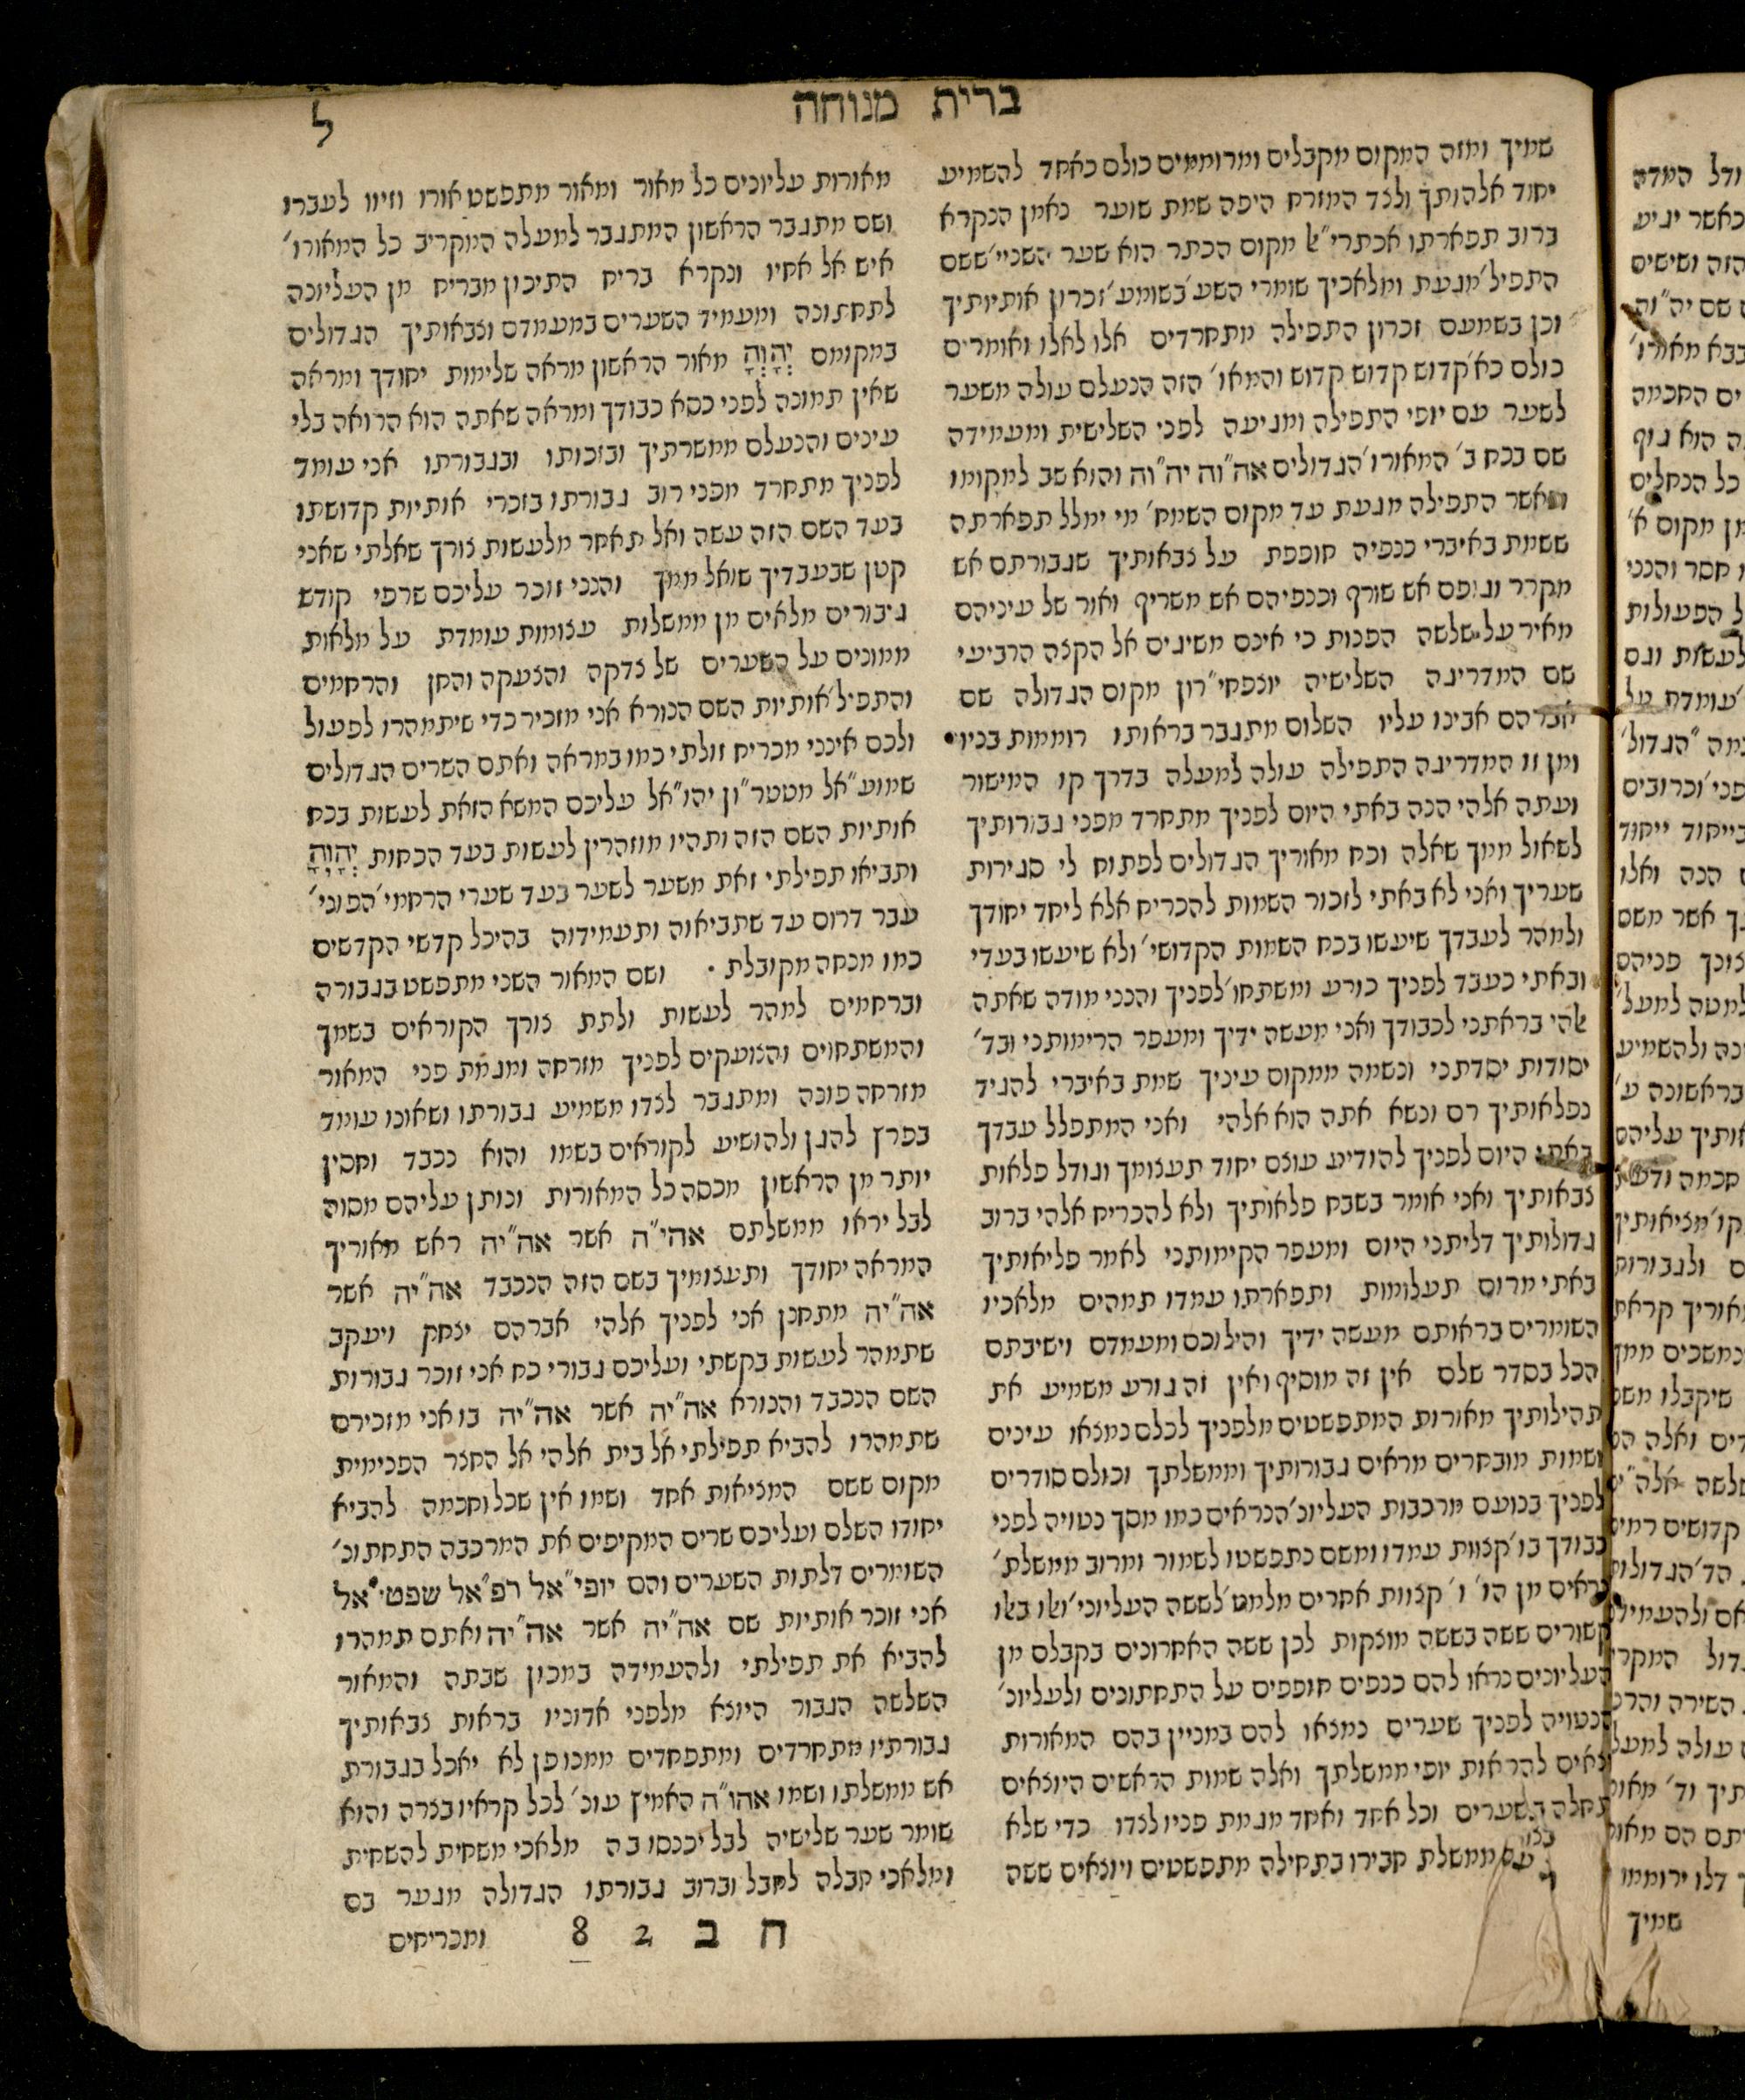 ברית מנוחה
ל
שמיך ומזה המקום מקבלים ומרוממים כולם כאחד להשמיע
יחוד אלהותך ולצד המזרח היפה שמת שוער נאמן הנקרא
ברוב תפארתו אכתרי״ﭏ מקום הכתר הוא שער השניי׳ששם
התפיל׳מגעת ומלאכיך שומרי השע׳בשומע׳זכרון אותיותיך
וכן בשמעם זכרון התפילה מתחרדים אלו לאלו ואומרים
כולם כא׳קדוש קדוש קדוש והמאו׳ הזה הנעלם עולה משער
לשער עם יופי התפילה ומגיעה לפני השלישית ומעמידה
שם בכח ב׳ המאורו׳הגדולים אה״וה יה״וה והוא שב למקומו
וכאשר התפילה מגעת עד מקום השמח׳ מי ימלל תפארתה
ששמת באיברי כנפיה חופפת על צבאותיך שגבורתם אש
מקרר וגופם אש שורף וכנפיהם אש משריף ואור של עיניהם
מאיר על שלשה הפכות כי אינם משיגים אל הקצה הרביעי
שם המדריגה השלישיה יופחי״רון מקום הגדולה שם
אברהם אבינו עליו השלום מתגבר בראותו רוממות בניו
ומן זו המדריגה התפילה עולה למעלה בדרך קו המישור
ועתה אלהי הנה באתי היום לפניך מתחרד מפני גבורותיך
לשאול ממך שאלה וכח מאוריך הגדולים לפתוח לי סגירות
שעריך ואני לא באתי לזכור השמות להכריח אלא ליחד יחודך
ולמהר לעבדך שיעשו בכח השמות הקדושי׳ ולא שיעשו בעדי
ובאתי כעבד לפניך כורע ומשתחו׳לפניך והנני מודה שאתה
ﭏהי בראתני לכבודך ואני מעשה ידיך ומעפר הרימותני ובד׳
יסודות יסדתני ונשמה ממקום עיניך שמת באיברי להגיד
נפלאותיך רם ונשא אתה הוא אלהי ואני המתפלל עבדך
באתי היום לפניך להודיע עוצם יחוד תעצומך וגודל פלאות
צבאותיך ואני אומר בשבח פלאותיך ולא להכריח אלהי ברוב
גדולותיך דליתני היום ומעפר הקימותני לאמר פליאותיך
באתי מרום תעלומות ותפארתו עמדו תמהים מלאכיו
השומרים בראותם מעשה ידיך והילוכם ומעמדם וישיבתם
הכל בסדר שלם אין זה מוסיף ואין זה גורע משמיע את
תהילותיך מאורות המתפשטים מלפניך לכלם נמצאו עינים
ושמות מובחרים מראים גבורותיך וממשלתך וכולם סודרים
לפניך בנועם מרכבות העליונ׳הנראים כמו מסך נטויה לפני
כבודך בו׳קצוות עמדו ומשם נתפשטו לשמור ומרוב ממשלת׳
נראים מן הו׳ ו׳ קצוות אחרים מלמט׳לששה העליוני׳וﭏו בﭏו
קשורים ששה בששה מוצקות לכן ששה האחרונים בקבלם מן
העליונים נראו להם כנפים חופפים על התחתונים ולעליונ׳
הנטויה לפניך שערים נמצאו להם במניין בהם המאורות
יצאים להראות יופי ממשלתך ואלה שמות הראשים היוצאים
תחלה השערים וכל אחד ואחד מגמת פניו לצדו כדי שלא
ממשלת חבירו בתחילה מתפשטים ויוצאים ששה
מאורות עליונים כל מאור ומאור מתפשט אורו וזיוו לעברו
ושם מתגבר הראשון המתגבר למעלה המקריב כל המאורו׳
איש אל אחיו ונקרא בריח התיכון מבריח מן העליונה
לתחתונה ומעמיד השערים במעמדם וצבאותיך הגדולים
במקומם יְהָוָהָ מאור הראשון מראה שלימות יחודך ומראה
שאין תמונה לפני כסא כבודך ומראה שאתה הוא הרואה בלי
עינים והנעלם ממשרתיך ובזכותו ובגבורתו אני עומד
לפניך מתחרד מפני רוב גבורתו בזכרי אותיות קדושתו
בעד השם הזה עשה ואל תאחר מלעשות צורך שאלתי שאני
קטן שבעבדיך שואל ממך והנני זוכר עליכם שרפי קודש
גיבורים מלאים מן ממשלות עצומות עומדת על מלאות
ממונים על השערים של צדקה והצעקה והחן והרחמים
והתפיל׳אותיות השם הנורא אני מזכיר כדי שיתמהרו לפעול
ולכם אינני מכריח זולתי כמו במראה ואתם השרים הגדולים
שמוע״אל מטטר״ון יהו״אל עליכם המשא הזאת לעשות בכח
אותיות השם הזה ותהיו מוזהרין לעשות בעד הכחות יְהָוָהָ
ותביאו תפילתי זאת משער לשער בעד שערי הרחמי׳הפוני׳
עבר דרום עד שתביאוה ותעמידוה בהיכל קדשי הקדשים
כמו מנחה מקובלת · ושם המאור השני מתפשט בגבורה
וברחמים למהר לעשות ולתת צורך הקוראים בשמך
והמשתחוים והצועקים לפניך מזרחה ומגמת פני המאור
מזרחה פונה ומתגבר לצדו משמיע גבורתו ושאונו עומד
בפרץ להגן ולהושיע לקוראים בשמו והוא נכבד וחסין
יותר מן הראשון מכסה כל המאורות ונותן עליהם מסוה
לבל יראו ממשלתם אהי״ה אשר אה״יה ראש מאוריך
המראה יחודך ותעצומיך בשם הזה הנכבד אה״יה אשר
אה״יה מתחנן אני לפניך אלהי אברהם יצחק ויעקב
שתמהר לעשות בקשתי ועליכם גבורי כח אני זוכר גבורות
השם הנכבד והנורא אה״יה אשר אה״יה בו אני מזכירם
שתמהרו להביא תפילתי אל בית אלהי אל החצר הפנימית
מקום ששם המציאות אחד ושמו אין שכל וחכמה להביא
יחודו השלם ועליכם שרים המקיפים את המרכבה התחתונ׳
השומרים דלתות השערים והם יופי״אל רפ״אל שפטי״אל
אני זוכר אותיות שם אה״יה אשר אה״יה ואתם תמהרו
להביא את תפילתי ולהעמידה במכון שבתה והמאור
השלשה הגבור היוצא מלפני אדוניו בראות צבאותיך
גבורתיו מתחרדים ומתפחדים ממנו פן לא יאכל בגבורת
אש ממשלתו ושמו אהו״ה האמיץ עונ׳ לכל קראיו בצרה והוא
שומר שער שלישיה לבל יכנסו בה מלאכי משחית להשחית
ומלאכי חבלה לחבל וברוב גבורתו הגדולה מגער בם
ח ב 2 8 ומבריחים